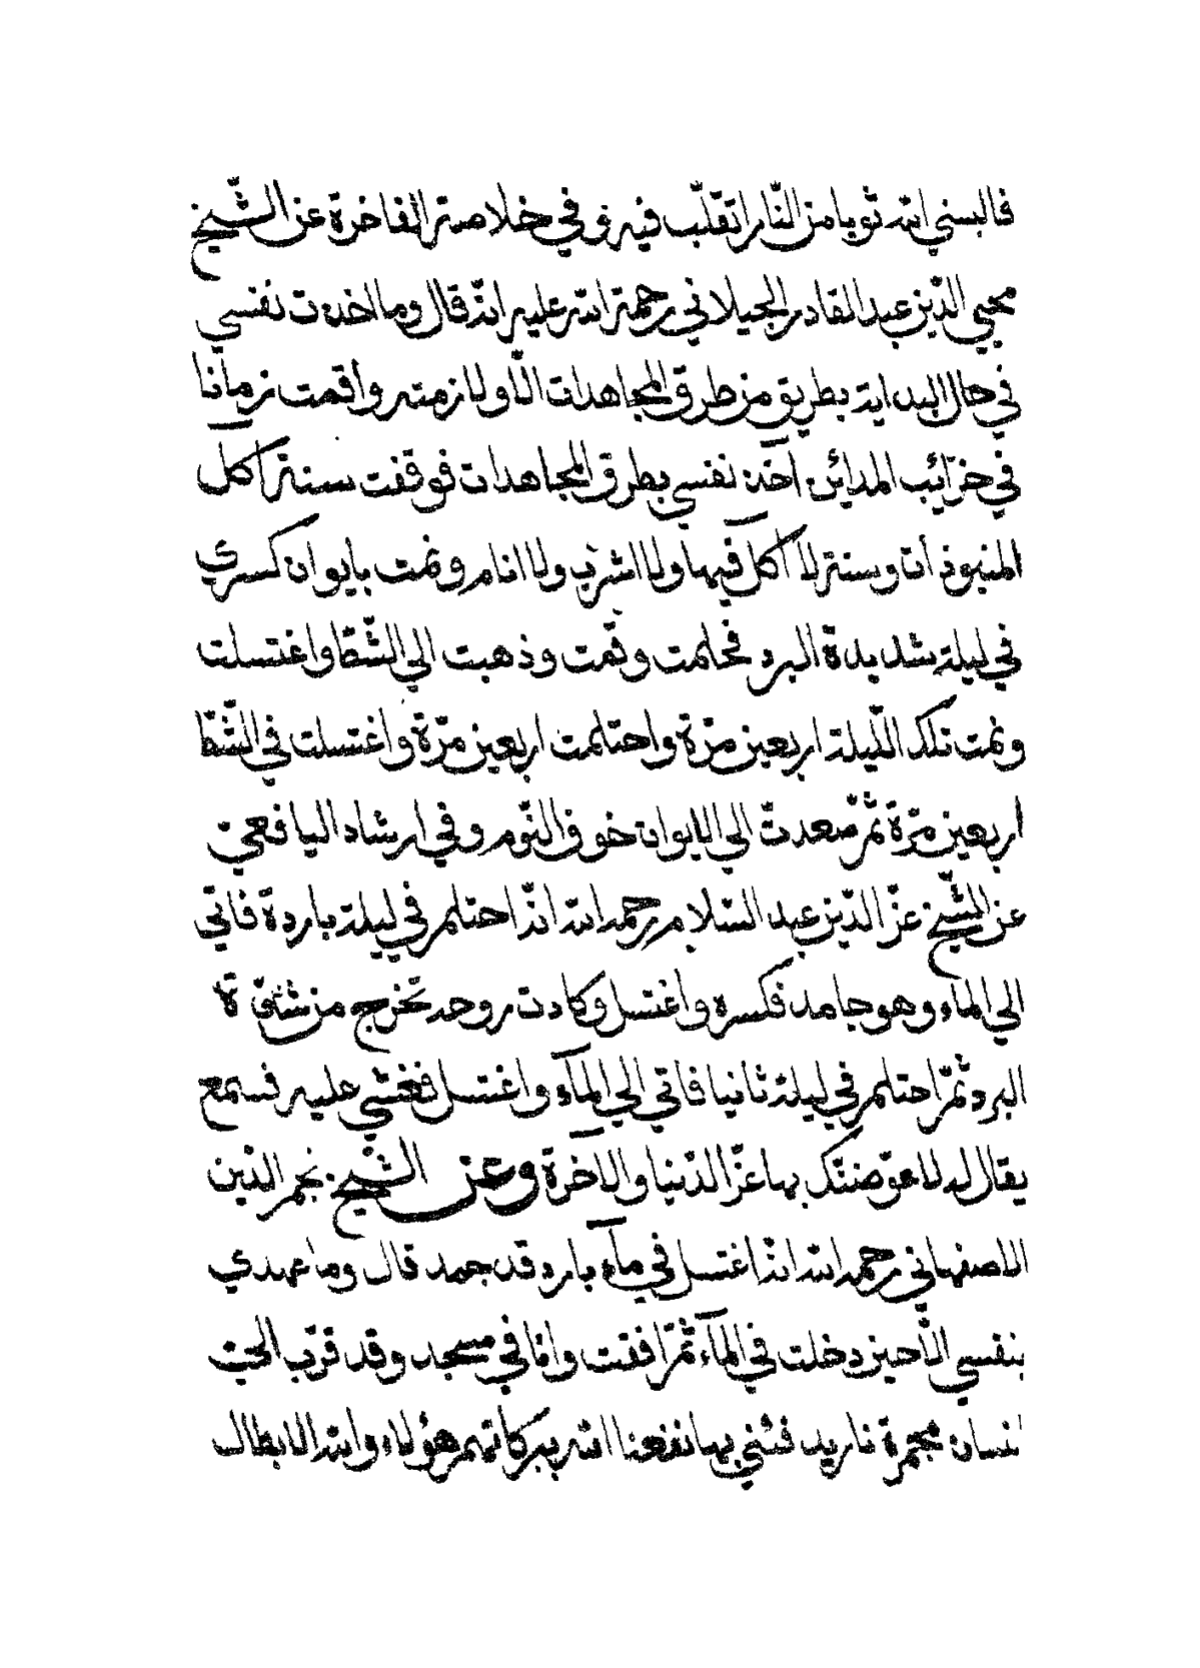 فالبسني الله ثوبا من النّار اتقلّب فيه وفي خلاصة الفاخرة عن الشّيخ
محيي الدّين عبد القادر الجيلاني رحمة الله عليه انّه قال وما اخذت نفسي
في حال البداية بطريق من طرق المجاهدات الّا ولازمته واقمت زمانا
في خرائب المدائن آخذ نفسي بطرق المجاهدات فوقفت سنة آكل
المنبوذات وسنة لا آكل فيها ولا اشرب ولا انام ونمت بايوان كسرى
في ليلة شديدة البرد فحلمت وقمت وذهبت الي الشّطّ واغتسلت
ونمت تلك اللّيلة اربعين مرّة واحتلمت اربعين مرّة واغتسلت في الشّطّ
اربعين مرّة ثمّ صعدت الي الايوان خوف النّوم وفي ارشاد اليافعيّ
عن الشّيخ عزّ الدّين عبد السّلام رحمه الله انّه احتلم في ليلة باردة فاتي
الي الماء وهو جامد فكسره واغتسل وكادت روحه تخرج من شدّة
البرد ثمّ احتلم في ليلة ثانيا فاتي الي المآء واغتسل فغشي عليه فسمع
يقال له لاعوّضنّك بها عزّ الدّنيا والآخرة وعن الشّيخ نجم الدّين
الاصفهاني رحمه الله انّه اغتسل في مآء بارد قد جمد قال وما عهدي
بنفسي الّا حين دخلت في المآء ثمّ افقت وانا في مسجد وقد قرّب الي
انسان مجمرة نار يدفئني بها نفعنا الله ببركاتهم هؤلاء والله الابطال